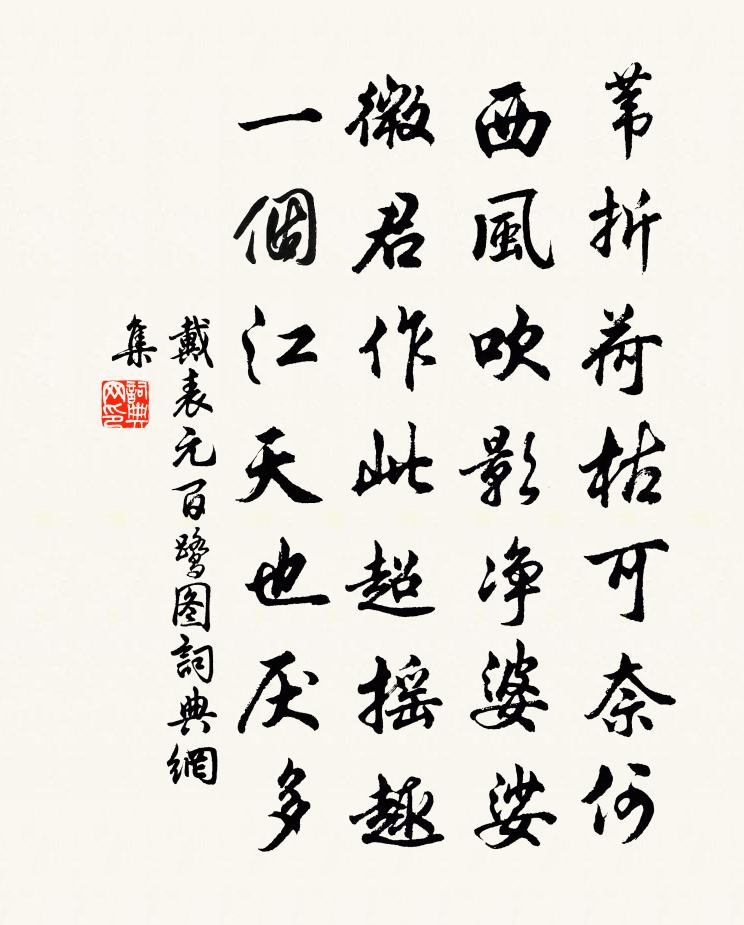 苇折荷枯可奈何
西風吹影净婆娑
微君作此超摇趣
一個江天也厌多
戴表元百鹭图詞典網
集
詞典网印